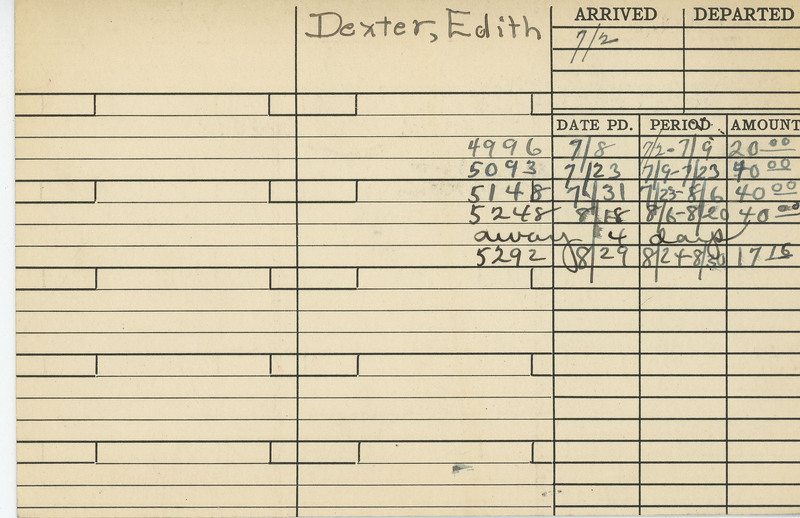 Dexter, Edith
ARRIVED DEPARTED
7/2
DATE PD. PERIOD AMOUNT
4996 7/8 7/2-7/9 20 00
5093 7/23 7/9-7/23 40 00
5148 7/31 7/23-8/6 40 00
5248 8/18 8/6-8/20 40 00
away 4 days
5292 8/29 8/24-8/30 17 15